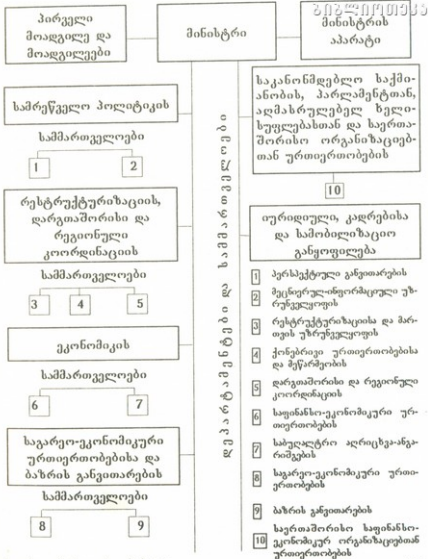 პირველი
მოადგილე და
მოადგილეები
მინისტრი
მინისტრის
აპარატი
სამრეწველო პოლიტიკის
სამმართველოები
1
2
რესტრუქტურიზაციის,
დარგთაშორისი და
რეგიონული
კოორდინაციის
სამმართველოები
3
4
5
ეკონომიკის
სამმართველოები
6
7
საგარეო-ეკონომიკური
ურთიერთობებისა და
ბაზრის განვითარების
სამმართველოები
8
9
დეპარტამენტები და სამმართველოები
საკანონმდებლო საქმი-
ანობის, პარლამენტთან,
აღმასრულებელ ხელი-
სუფლებასთან და საერთა-
შორისო ორგანიზაციებ-
თან ურთიერთობების
10
იურიდიული, კადრებისა
და სამობილიზაციო
განყოფილება
1 პერსპექტიული განვითარების
2 მეცნიერულ-ინფორმაციული უზ-
რუნველყოფის
3 რესტრუქტურიზაციისა და მარ-
თვის უზრუნველყოფის
4 ქონებრივი ურთიერთობებისა
და მეწარმეობის
5 დარგთაშორისი და რეგიონული
კოორდინაციის
6 საფინანსო-ეკონომიკური ურ-
თიერთობების
7 საბუღალტრო აღრიცხვა-ანგა-
რიშგების
8 საგარეო-ეკონომიკური ურთი-
ერთობების
9 ბაზრის განვითარების
10 საერთაშორისო საფინანსო-
ეკონომიკურ ორგანიზაციებთან
ურთიერთობების